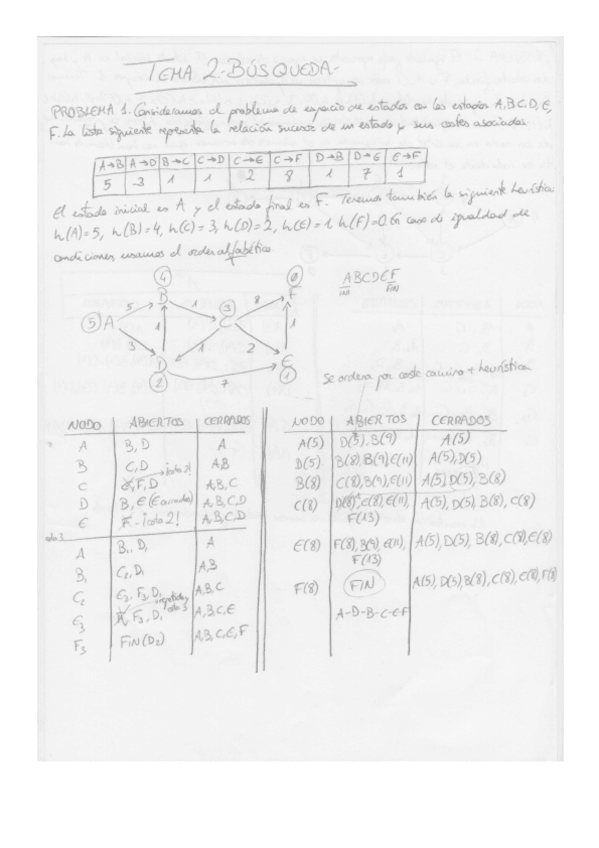 TEMA 2-BÚSQUEDA-
PROBLEMA 1. Consideramos el problema de espacio de estados con los estados A,B,C,D,E,
F. La lista siguiente representa la relación sucesor de un estado y sus costes asociados
A→B A→D B→C C→D C→E C→F D→B D→E E→F
5 3 1 1 2 8 1 7 1
El estado inicial es A y el estado final es F. Tenemos también la siguiente heurística
h(A)=5, h(B)=4, h(C)=3, h(D)=2, h(E)=1, h(F)=0. En caso de igualdad de
condiciones usamos el orden alfabético
4 0
B F
5 3 8 3
5 A 5 1 C
3 1 1 2 1
D 7 E
2 1
ABCDEF
INI FIN
Se ordena por coste camino + heurística
NODO ABIERTOS CERRADOS
A B, D A
B C, D A,B
C F, D A, B, C
D B, E A, B, C, D
E F - ¡cota 2! A, B, C, D
cota 3
A B₁, D₁ A
B₁ C₂, D₁ A,B
C₂ E₃, F₃, D₁ A, B, C
E₃ F₃, D₁ A, B, C, E
F₃ FIN(D₂) A, B, C, E, F
NODO ABIERTOS CERRADOS
A(5) D(5), B(9) A(5)
D(5) B(8), B(9), E(11) A(5), D(5)
B(8) C(8), B(9), E(11) A(5), D(5), B(8)
C(8) E(8), E(11), A(5), D(5), B(8), C(8)
F(13)
E(8) F(8), B(9), E(11), A(5), D(5), B(8), C(8), E(8)
F(13)
F(8) FIN A(5), D(5), B(8), C(8), E(8), F(8)
A-D-B-C-E-F